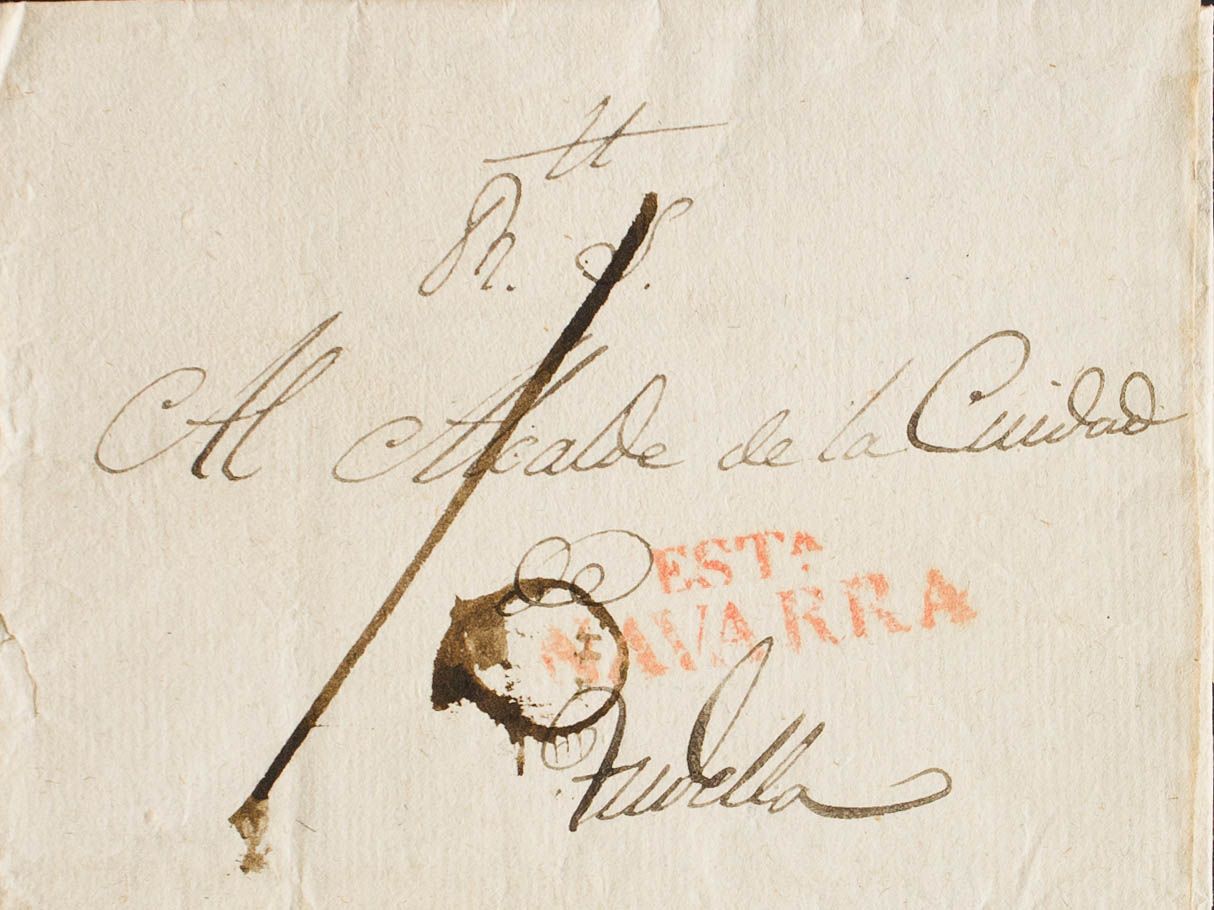 R. S.
Al Alcalde de la Ciudad
de
ESTA
NAVARRA
Tudella